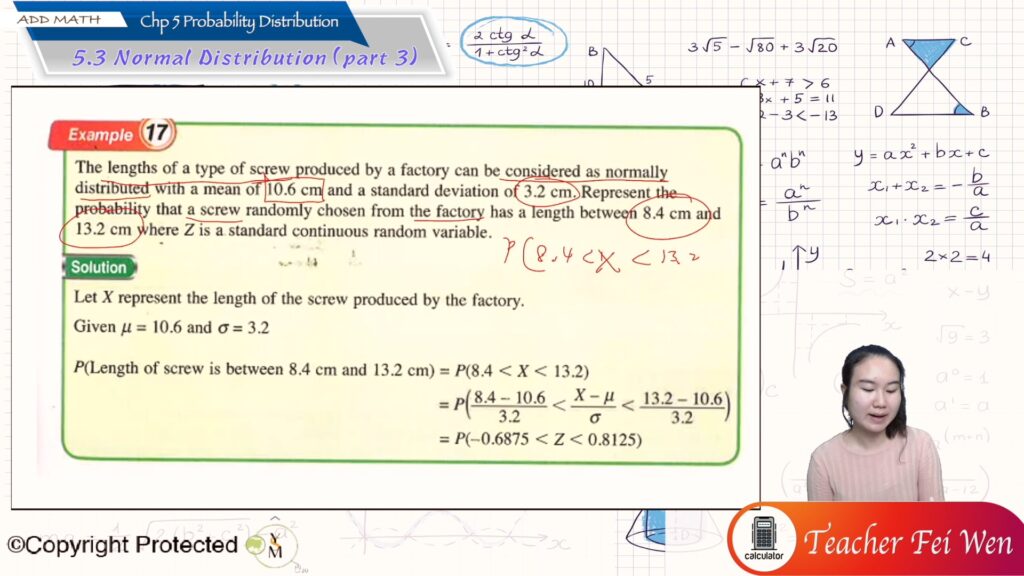 ADD MATH
Chp 5 Probability Distribution
5.3 Normal Distribution (part 3)
= 2 ctg α / 1 + ctg² α
B
5
3√5 − √80 + 3√20
x + 7 > 6
3x + 5 = 11
2 − 3 < −13
A C
D B
aⁿbⁿ
= aⁿ / bⁿ
y = ax² + bx + c
x₁ + x₂ = − b/a
x₁ · x₂ = c/a
y
2 × 2 = 4
S = a²
x − y
x
√9 = 3
a⁰ = 1
a¹ = a
Example 17
The lengths of a type of screw produced by a factory can be considered as normally
distributed with a mean of 10.6 cm and a standard deviation of 3.2 cm. Represent the
probability that a screw randomly chosen from the factory has a length between 8.4 cm and
13.2 cm where Z is a standard continuous random variable.
P(8.4 < X < 13.2
Solution
Let X represent the length of the screw produced by the factory.
Given μ = 10.6 and σ = 3.2
P(Length of screw is between 8.4 cm and 13.2 cm) = P(8.4 < X < 13.2)
= P(8.4 − 10.6 / 3.2 < X − μ / σ < 13.2 − 10.6 / 3.2)
= P(−0.6875 < Z < 0.8125)
©Copyright Protected
YM
x
calculator
Teacher Fei Wen